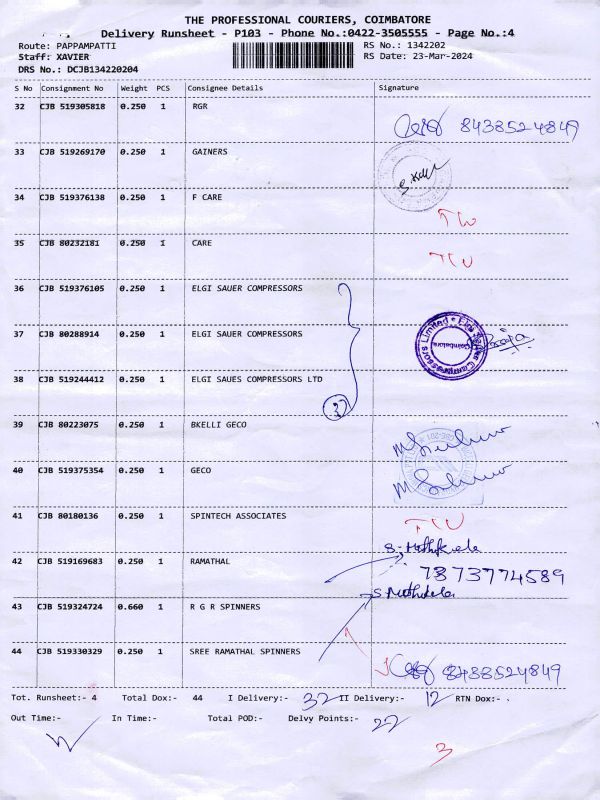 THE PROFESSIONAL COURIERS, COIMBATORE
Delivery Runsheet - P103 - Phone No.:0422-3505555 - Page No.:4
Route: PAPPAMPATTI RS No.: 1342202
Staff: XAVIER RS Date: 23-Mar-2024
DRS No.: DCJB134220204
S No Consignment No Weight PCS Consignee Details Signature
32 CJB 519305818 0.250 1 RGR
8438524849
33 CJB 519269170 0.250 1 GAINERS
34 CJB 519376138 0.250 1 F CARE
35 CJB 80232181 0.250 1 CARE
36 CJB 519376105 0.250 1 ELGI SAUER COMPRESSORS
37 CJB 80288914 0.250 1 ELGI SAUER COMPRESSORS
38 CJB 519244412 0.250 1 ELGI SAUES COMPRESSORS LTD
3
39 CJB 80223075 0.250 1 BKELLI GECO
40 CJB 519375354 0.250 1 GECO
41 CJB 80180136 0.250 1 SPINTECH ASSOCIATES
42 CJB 519169683 0.250 1 RAMATHAL
7373774589
43 CJB 519324724 0.660 1 R G R SPINNERS
44 CJB 519330329 0.250 1 SREE RAMATHAL SPINNERS
8438524849
Tot. Runsheet:- 4 Total Dox:- 44 I Delivery:- 32 II Delivery:- 12 RTN Dox:-
Out Time:- In Time:- Total POD:- Delvy Points:- 22
3